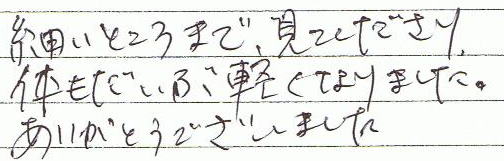 細いところまで、見てくださり、
体もだいぶ軽くなりました。
ありがとうございました